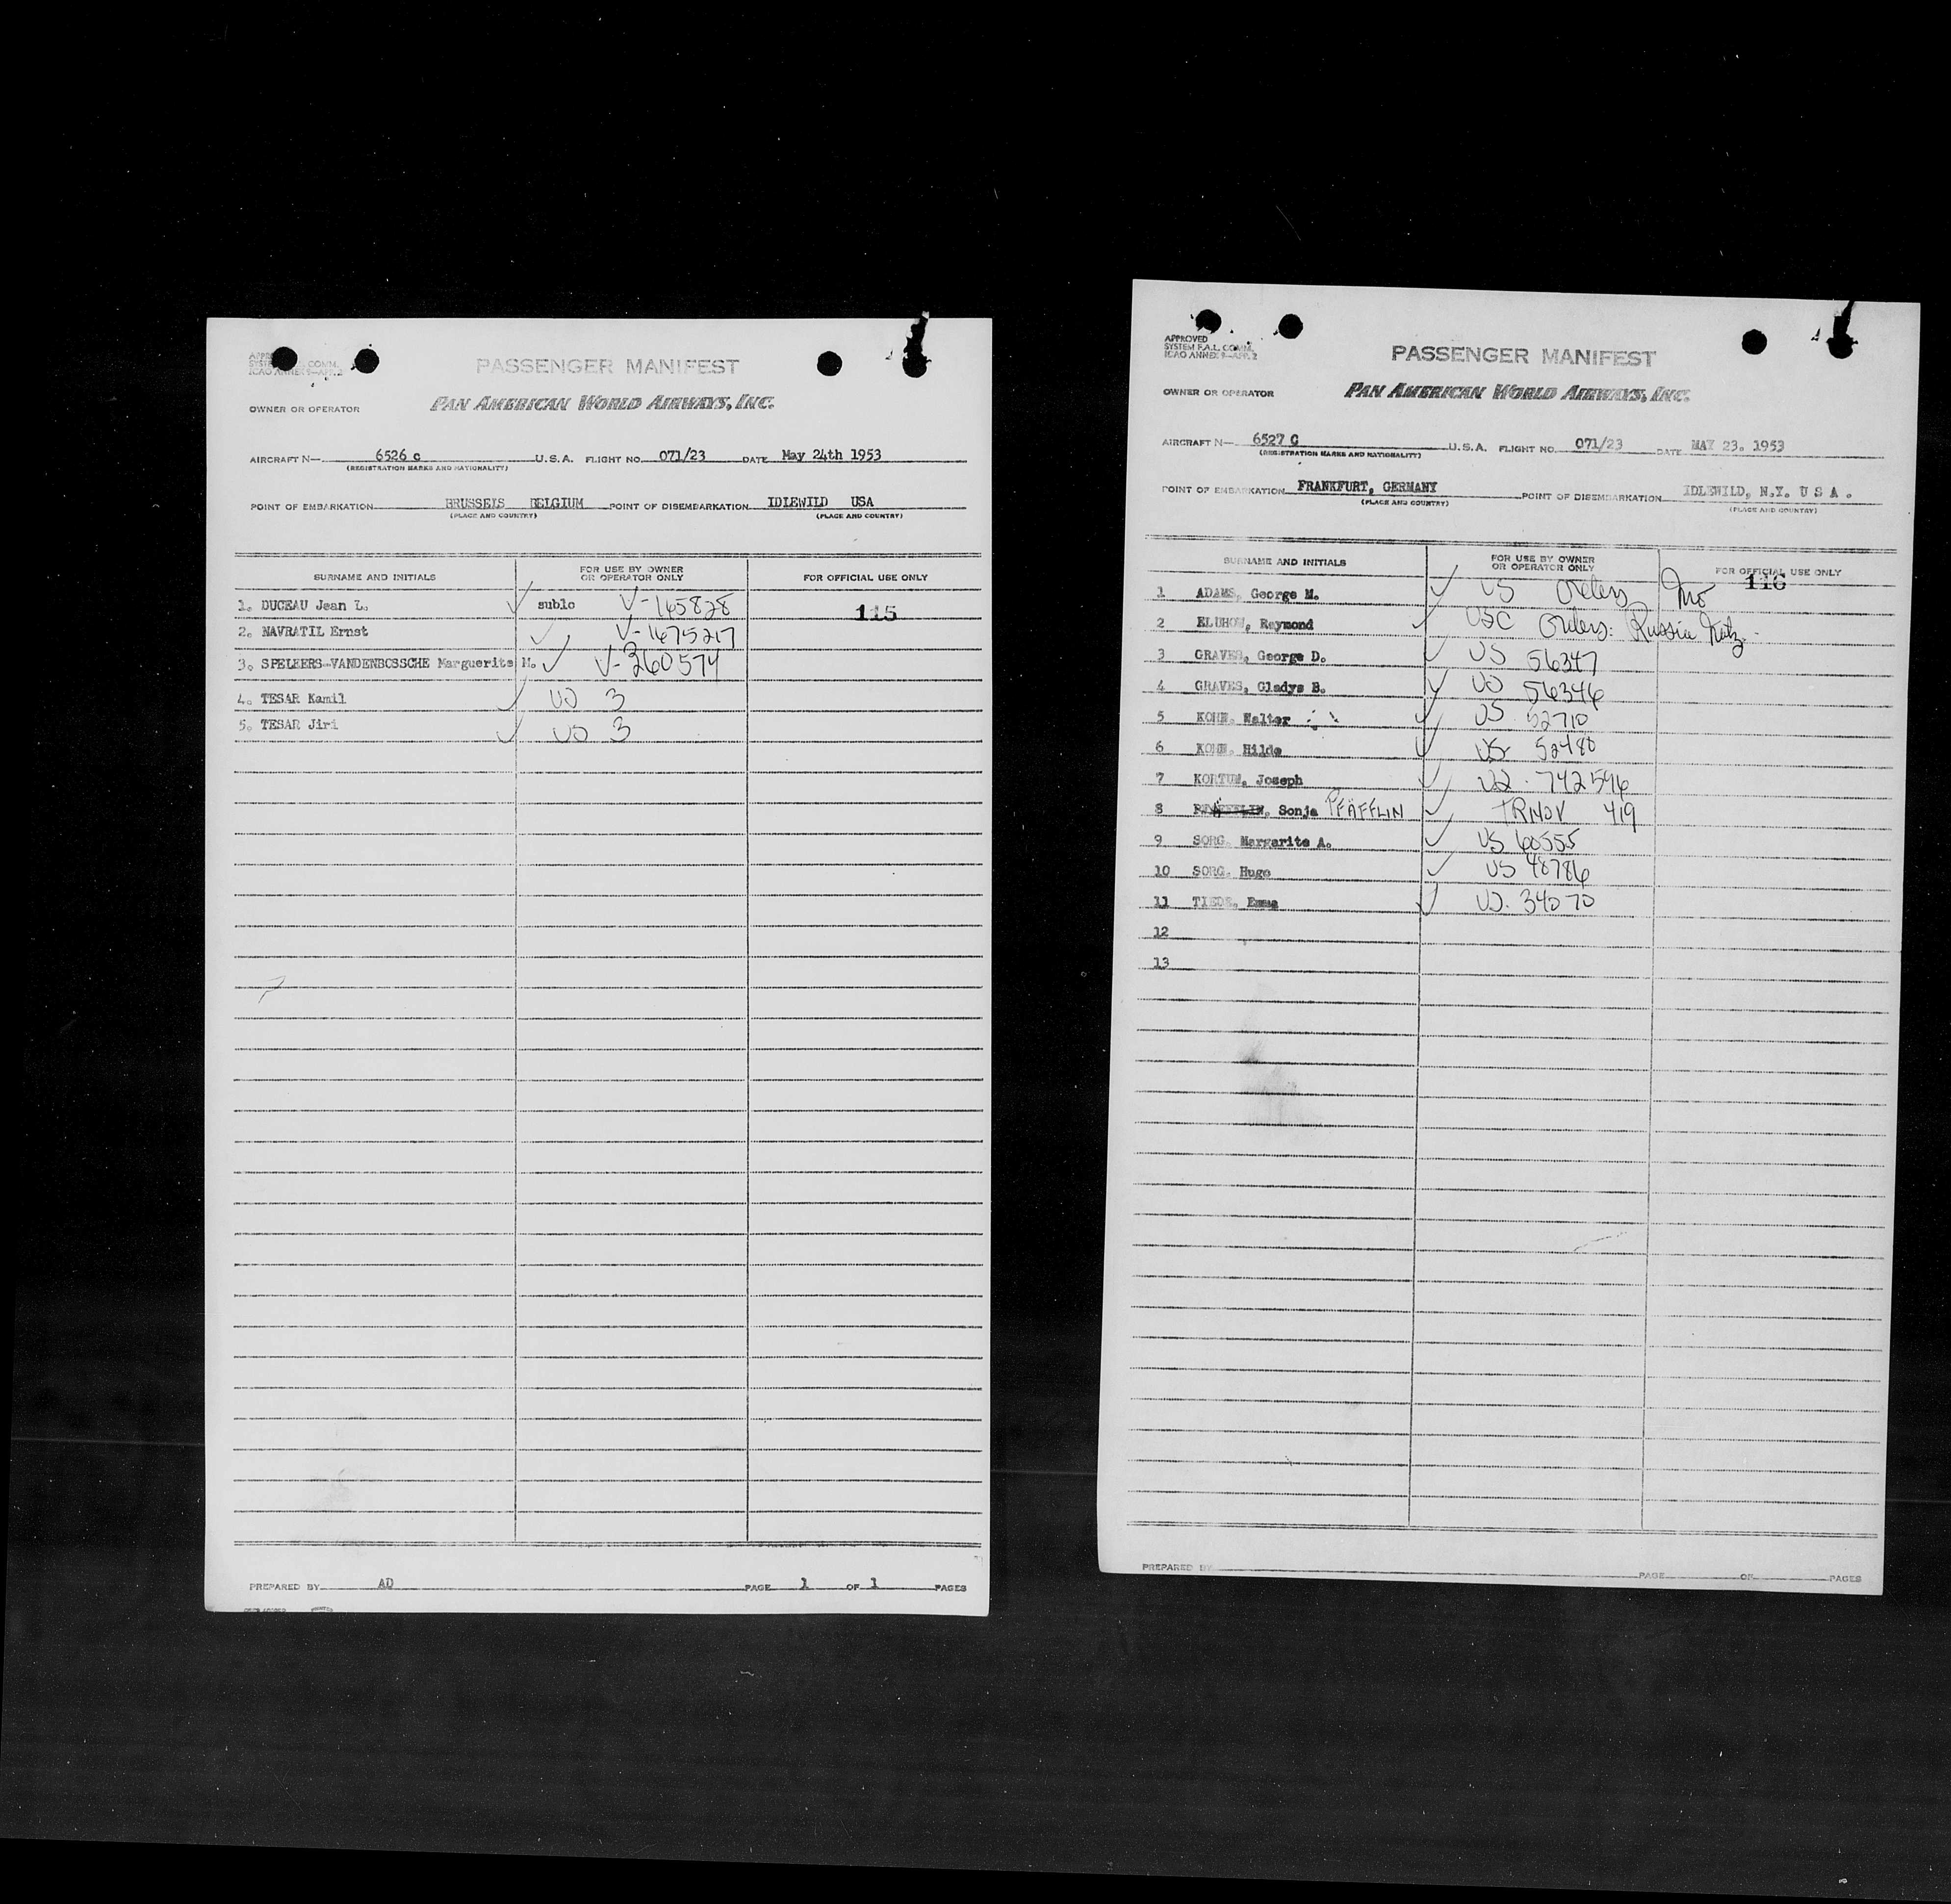 PASSENGER MANIFEST
OWNER OR OPERATOR PAN AMERICAN WORLD AIRWAYS, INC.
AIRCRAFT N— 6526 c U.S.A. FLIGHT NO. 071/23 DATE May 24th 1953
(REGISTRATION MARKS AND NATIONALITY)
POINT OF EMBARKATION BRUSSELS BELGIUM POINT OF DISEMBARKATION IDLEWILD USA
(PLACE AND COUNTRY) (PLACE AND COUNTRY)
SURNAME AND INITIALS FOR USE BY OWNER OR OPERATOR ONLY FOR OFFICIAL USE ONLY
1. DUCEAU Jean L. ✓ sublo V-165828 115
2. NAVRATIL Ernst ✓ V-1675217
3. SPELEERS-VANDENBOSSCHE Marguerite M. ✓ V-260574
4. TESAR Kamil ✓ US 3
5. TESAR Jiri ✓ US 3
PREPARED BY AD PAGE 1 OF 1 PAGES
APPROVED
SYSTEM F.A.L. COMM.
ICAO ANNEX 9—APP. 2
PASSENGER MANIFEST
OWNER OR OPERATOR PAN AMERICAN WORLD AIRWAYS, INC.
AIRCRAFT N— 6527 C U.S.A. FLIGHT NO. 071/23 DATE MAY 23. 1953
(REGISTRATION MARKS AND NATIONALITY)
POINT OF EMBARKATION FRANKFURT, GERMANY POINT OF DISEMBARKATION IDLEWILD, N.Y. U S A .
(PLACE AND COUNTRY) (PLACE AND COUNTRY)
SURNAME AND INITIALS FOR USE BY OWNER OR OPERATOR ONLY FOR OFFICIAL USE ONLY
116
1 ADAMS, George M. ✓ US Orders
2 ELUHOW, Raymond ✓ USC Orders. Russia Natz.
3 GRAVES, George D. ✓ US 56347
4 GRAVES, Gladys B. ✓ US 56346
5 KOHN, Walter ✓ US 52710
6 KOHN, Hilde ✓ US 52480
7 KORTUM, Joseph ✓ US 742596
8 Sonja PFÄFFLIN ✓ 419
9 SORG, Margarite A. ✓ US 60555
10 SORG, Hugo ✓ US 48786
11 Emma ✓ US. 34070
12
13
PREPARED BY PAGE OF PAGES